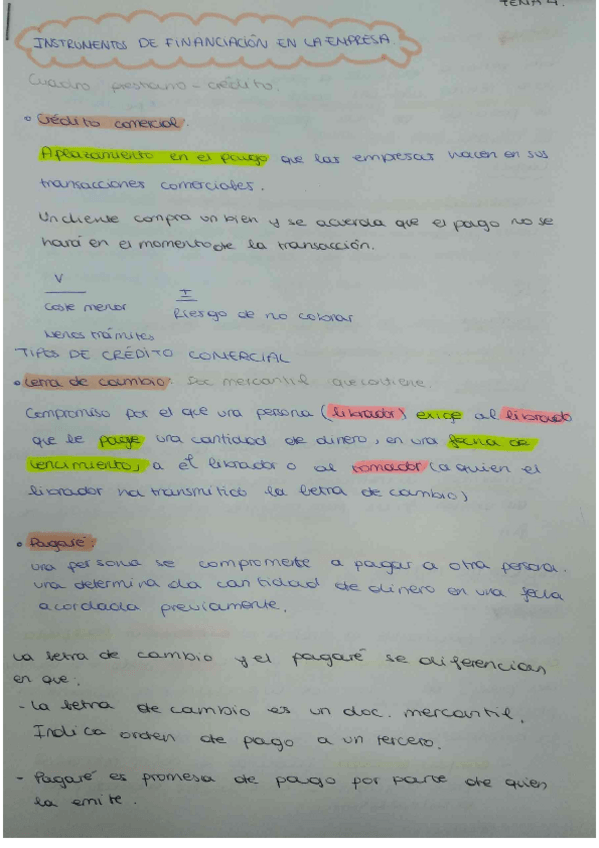 TEMA 4.
INSTRUMENTOS DE FINANCIACIÓN EN LA EMPRESA.
Cuadro préstamo - crédito.
• Crédito comercial.
Aplazamiento en el pago que las empresas hacen en sus
transacciones comerciales.
Un cliente compra un bien y se acuerda que el pago no se
hará en el momento de la transacción.
V
I
Coste menor
Riesgo de no cobrar
Menos trámites
TIPOS DE CRÉDITO COMERCIAL
• Letra de cambio: Doc mercantil que contiene.
Compromiso por el que una persona (librador) exige al librado
que le pague una cantidad de dinero, en una fecha de
vencimiento, a él librador o al tomador (a quien el
librador ha transmitido la letra de cambio)
• Pagaré:
una persona se compromente a pagar a otra persona.
una determinada cantidad de dinero en una fecha
acordada previamente.
La letra de cambio y el pagaré se diferencian
en que:
- La letra de cambio es un doc. mercantil.
Indica orden de pago a un tercero.
- Pagaré es promesa de pago por parte de quien
la emite.